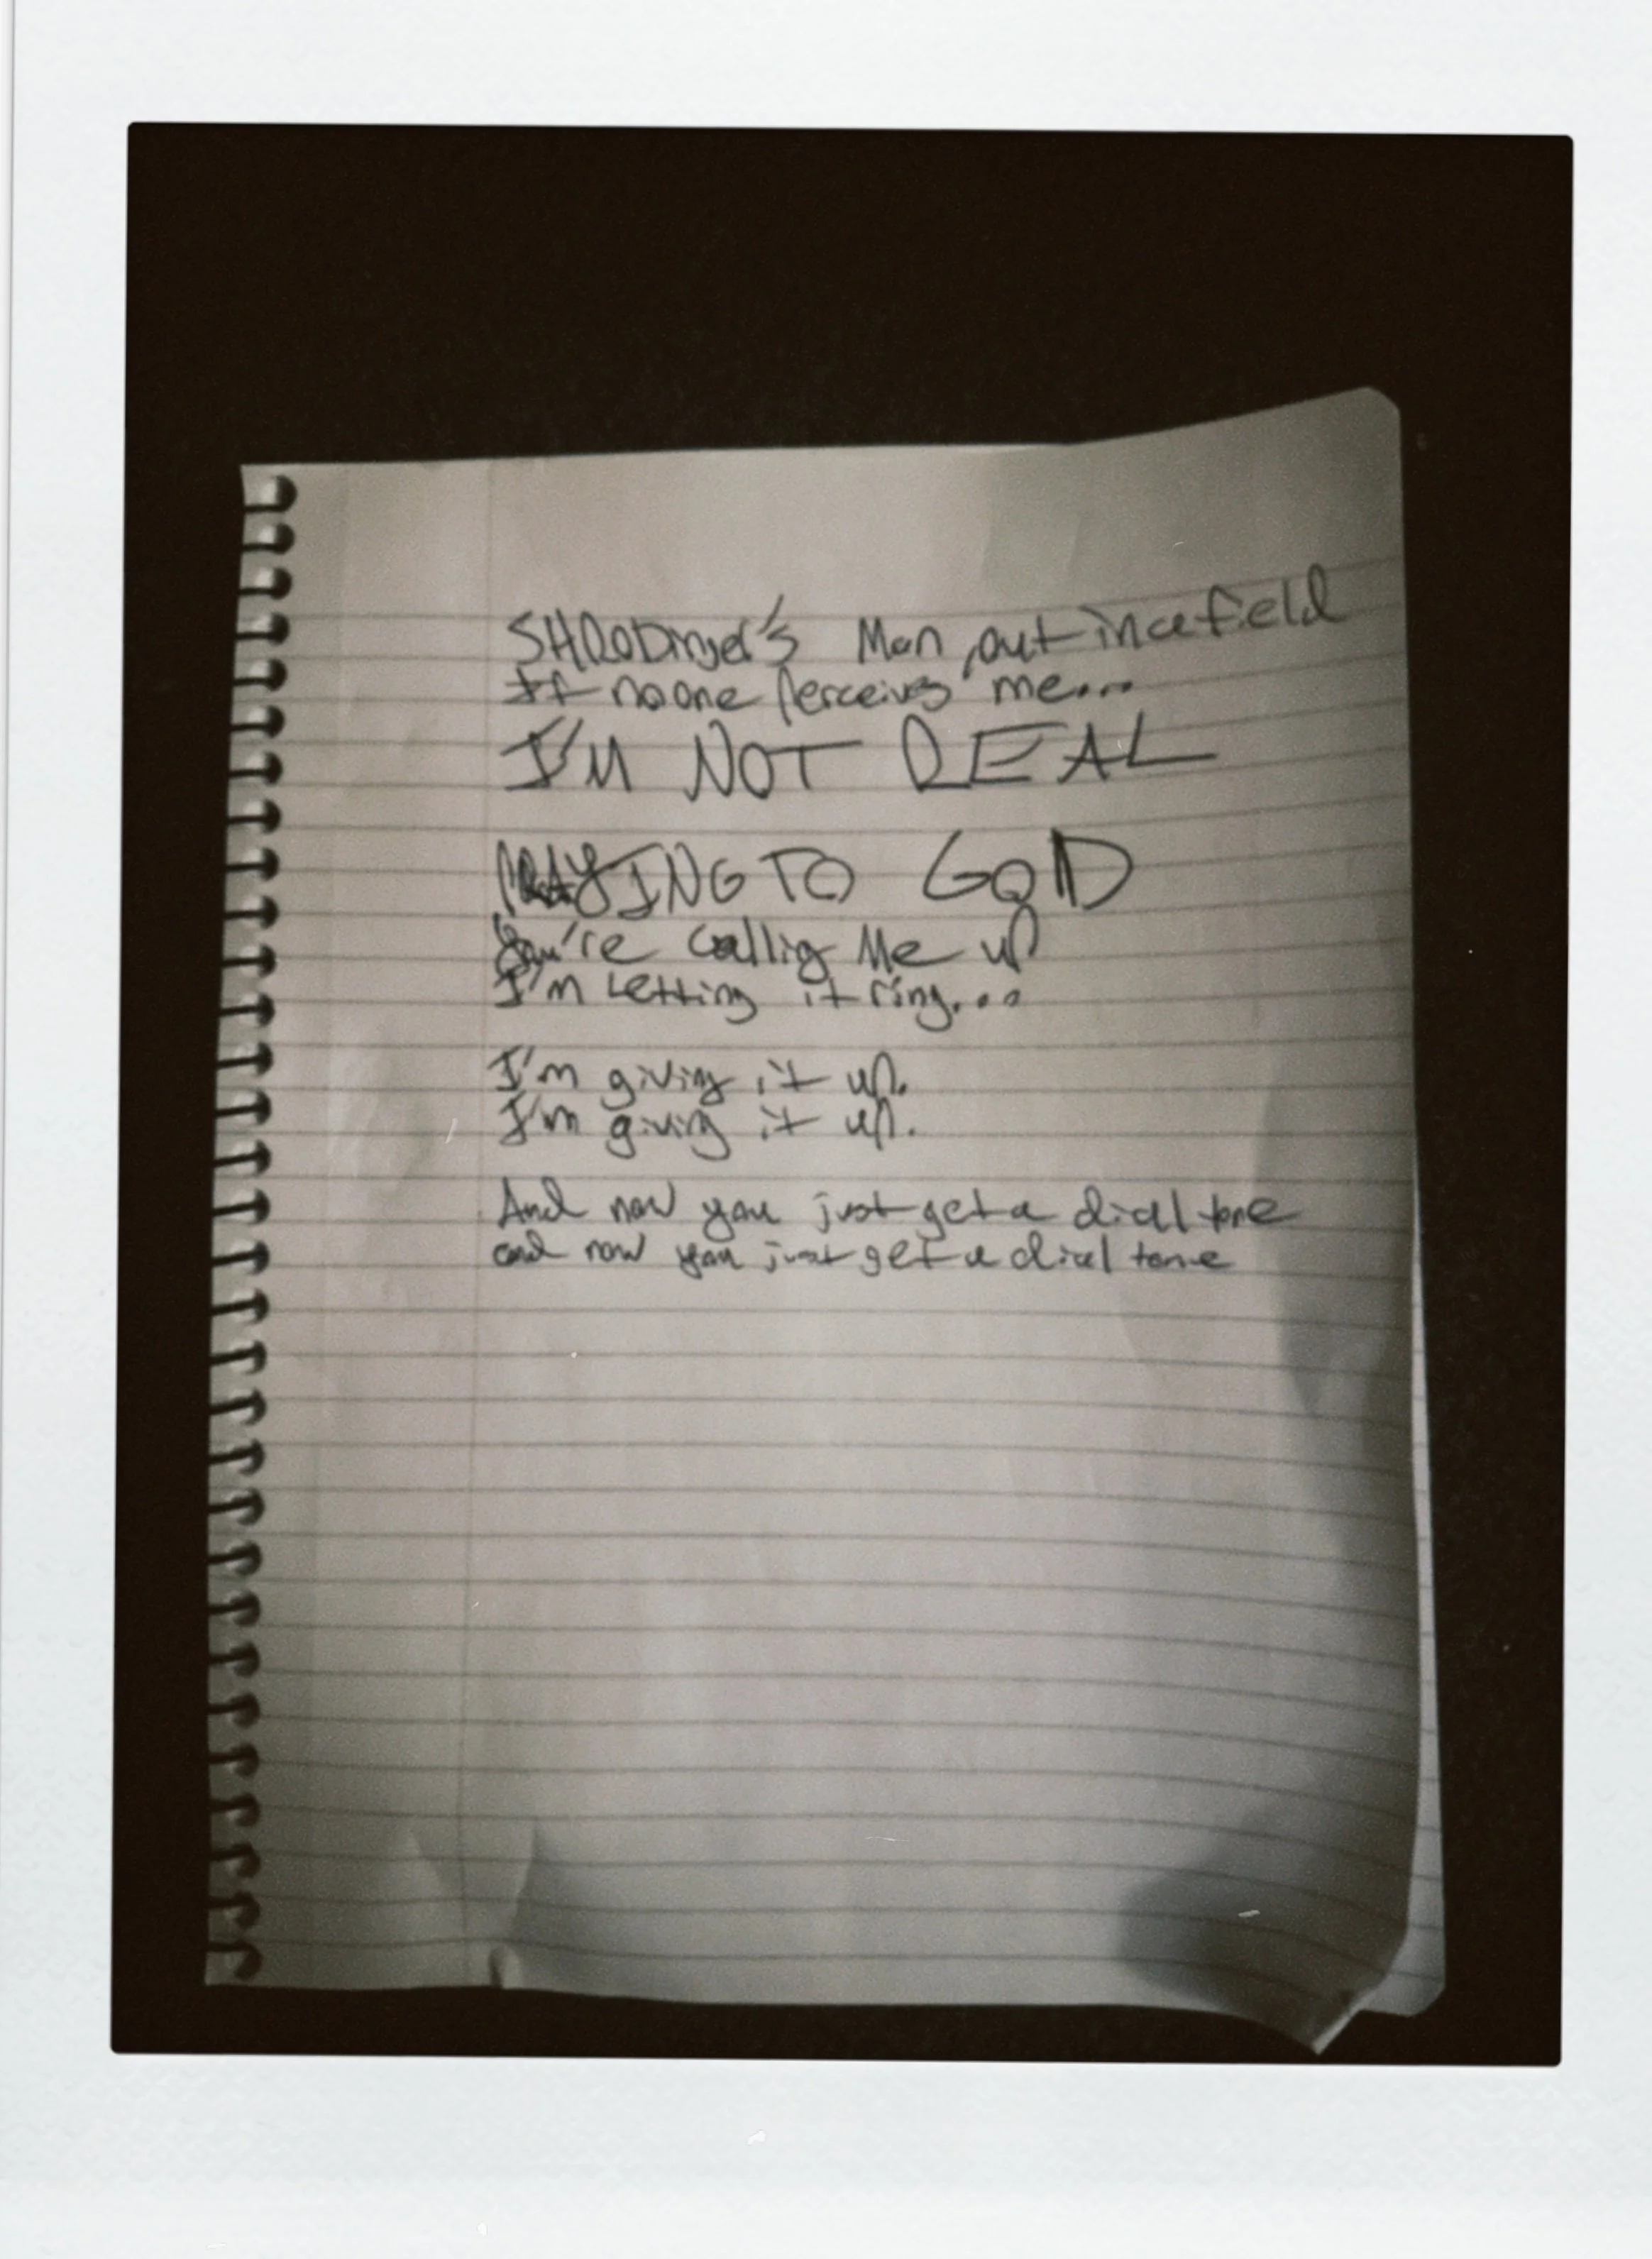 SHRODinger's Man, out in a field
If no one perceives me...
I'M NOT REAL
PRAYING TO GOD
You're calling Me up
I'm Letting it ring...
I'm giving it up.
I'm giving it up.
And now you just get a dial tone
and now you just get a dial tone